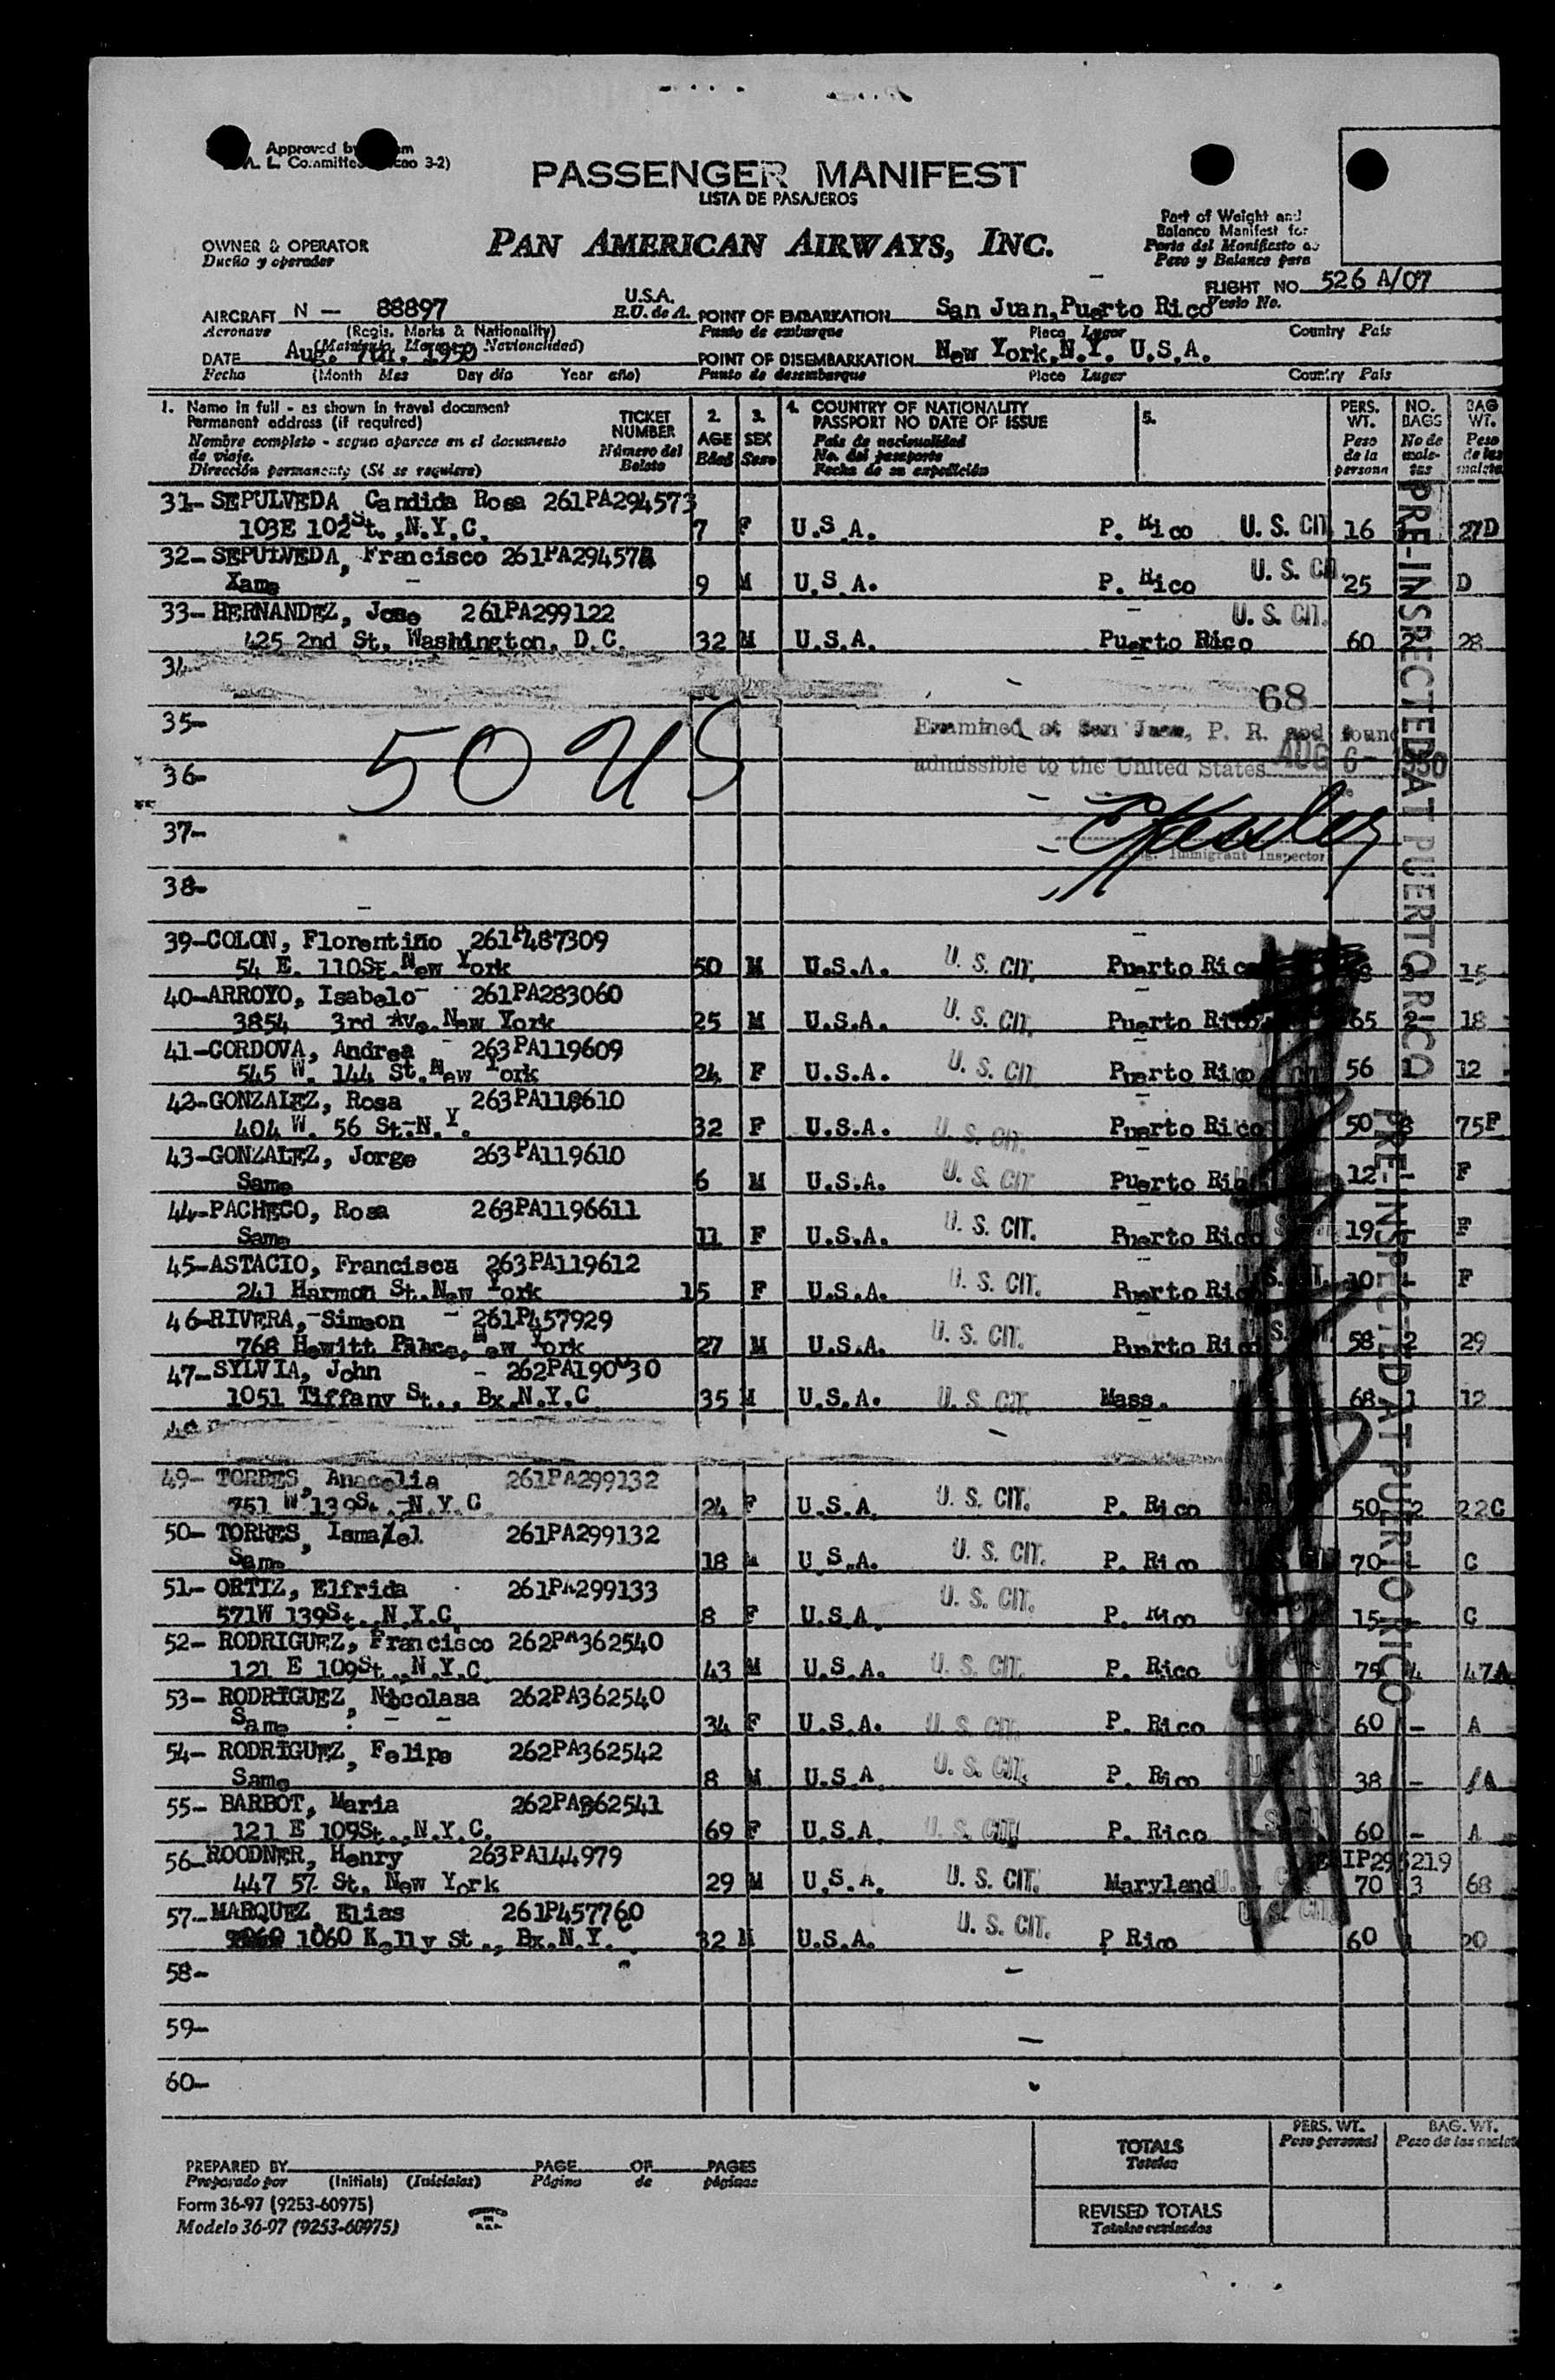 Approved by
A. L. Committee 3-2)
PASSENGER MANIFEST
LISTA DE PASAJEROS
Part of Weight and
Balance Manifest for
Parte del Manifiesto de
Peso y Balance para
OWNER & OPERATOR
Dueño y operador
PAN AMERICAN AIRWAYS, INC.
FLIGHT NO. 526 A/07
Vuelo No.
AIRCRAFT N - 88897 U.S.A. POINT OF EMBARKATION San Juan, Puerto Rico
Aeronave (Regis. Marks & Nationality) E.U. de A. Punto de embarque Place Lugar Country País
DATE Aug. 7th. 1950 POINT OF DISEMBARKATION New York, N.Y. U.S.A.
Fecha (Month Mes Day día Year año) Punto de desembarque Place Lugar Country País
1. Name in full - as shown in travel document
Permanent address (if required)
Nombre completo - segun aparece en el documento
de viaje.
Dirección permanente (Si se requiere)
TICKET
NUMBER
Número del
Boleto
2.
AGE
Edad
3.
SEX
Sexo
4. COUNTRY OF NATIONALITY
PASSPORT NO DATE OF ISSUE
País de nacionalidad
No. del pasaporte
Fecha de su expedición
5.
PERS.
WT.
Peso
de la
persona
NO.
BAGS
No de
male-
tas
BAG
WT.
Peso
de las
maletas
31- SEPULVEDA Candida Rosa 261PA294573
103E 102St. ,N.Y.C. 7 F U.S.A. P. Rico U. S. CIT. 16 27D
32- SEPULVEDA, Francisco 261PA294573
Xame 9 M U.S.A. P. Rico U. S. CIT. 25 D
33- HERNANDEZ, Jose 261PA299122
425 2nd St. Washington, D.C. 32 M U.S.A. Puerto Rico U. S. CIT. 60 2 28
34-
68
35-
Examined at San Juan, P. R. and found
admissible to the United States AUG 6 - 1950
50 US
36-
37-
Immigrant Inspector
38-
PRE-INSPECTED AT PUERTO RICO
39-COLON, Florentino 261P487309
54 E. 110St. New York 50 M U.S.A. U. S. CIT. Puerto Rico 15
40-ARROYO, Isabelo 261PA283060
3854 3rd Ave. New York 25 M U.S.A. U. S. CIT. Puerto Rico 65 2 18
41-CORDOVA, Andrea 263PA119609
545 W. 144 St. New York 24 F U.S.A. U. S. CIT. Puerto Rico 56 1 12
42-GONZALEZ, Rosa 263PA118610
404 W. 56 St.-N.Y. 32 F U.S.A. U. S. CIT. Puerto Rico 50 75F
43-GONZALEZ, Jorge 263PA119610
Same 6 M U.S.A. U. S. CIT. Puerto Rico 12 - F
44-PACHECO, Rosa 263PA1196611
Same 11 F U.S.A. U. S. CIT. Puerto Rico 19 F
45-ASTACIO, Francisca 263PA119612
241 Harmon St. New York 15 F U.S.A. U. S. CIT. Puerto Rico - F
46-RIVERA, Simeon 261P457929
768 Hewitt Palce, New York 27 M U.S.A. U. S. CIT. Puerto Rico 58 2 29
47-SYLVIA, John - 262PA190030
1051 Tiffany St., Bx.N.Y.C 35 M U.S.A. U. S. CIT. Mass. 68 1 12
PRE-INSPECTED AT PUERTO RICO
49- TORRES, Anacelia 261PA299132
751 W 139St.-N.Y.C. 24 F U.S.A. U. S. CIT. P. Rico 50 2 22C
50- TORRES, Ismael 261PA299132
Same 18 M U.S.A. U. S. CIT. P. Rico 70 - C
51- ORTIZ, Elfrida 261PA299133
571W 139St., N.Y.C. 8 F U.S.A. U. S. CIT. P. Rico 15 - C
52- RODRIGUEZ, Francisco 262PA362540
121 E 109St., N.Y.C. 43 M U.S.A. U. S. CIT. P. Rico 75 4 47A
53- RODRIGUEZ, Nicolasa 262PA362540
Same 34 F U.S.A. U. S. CIT. P. Rico 60 - A
54- RODRIGUEZ, Felipe 262PA362542
Same 8 M U.S.A. U. S. CIT. P. Rico 38 - /A
55- BARBOT, Maria 262PA362541
121 E 109St., N.Y.C. 69 F U.S.A. U. S. CIT. P. Rico 60 - A
56-ROODNER, Henry 263PA144979
447 57 St. New York 29 M U.S.A. U. S. CIT. Maryland 70 3 68
57-MARQUEZ Elias 261P457760
1060 Kelly St., Bx.N.Y.C. 32 M U.S.A. U. S. CIT. P Rico 60 1 20
58-
59-
60-
TOTALS
Totales
PERS. WT.
Peso personal
BAG. WT.
Peso de las malet
PREPARED BY PAGE OF PAGES
Preparado por (Initials) (Iniciales) Página de páginas
Form 36-97 (9253-60975)
Modelo 36-97 (9253-60975)
REVISED TOTALS
Totales revisados